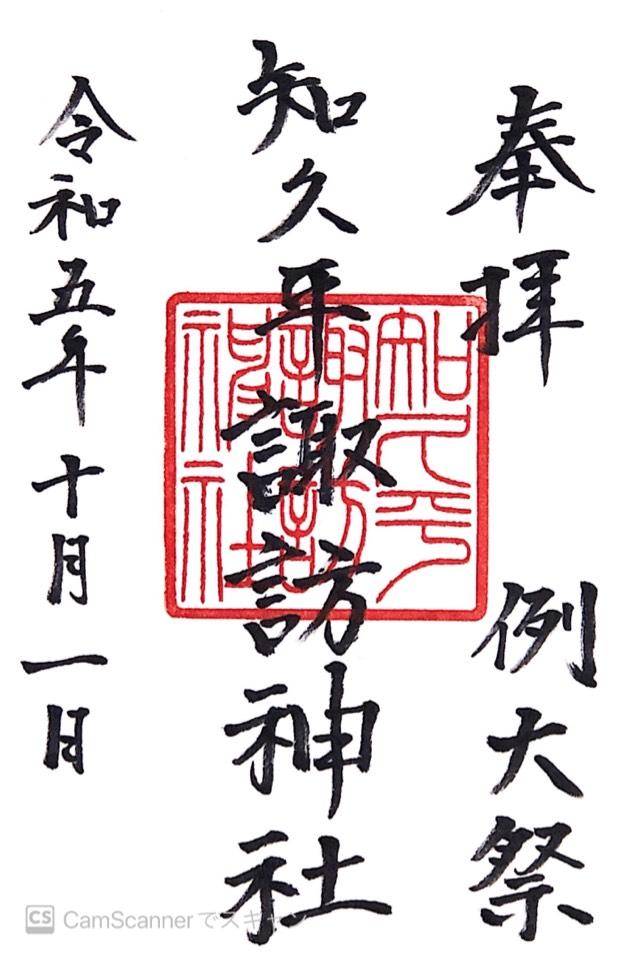 奉拝 例大祭
知久平諏訪神社
令和五年十月一日
知久平
諏訪
神社
CS CamScannerでスキャン